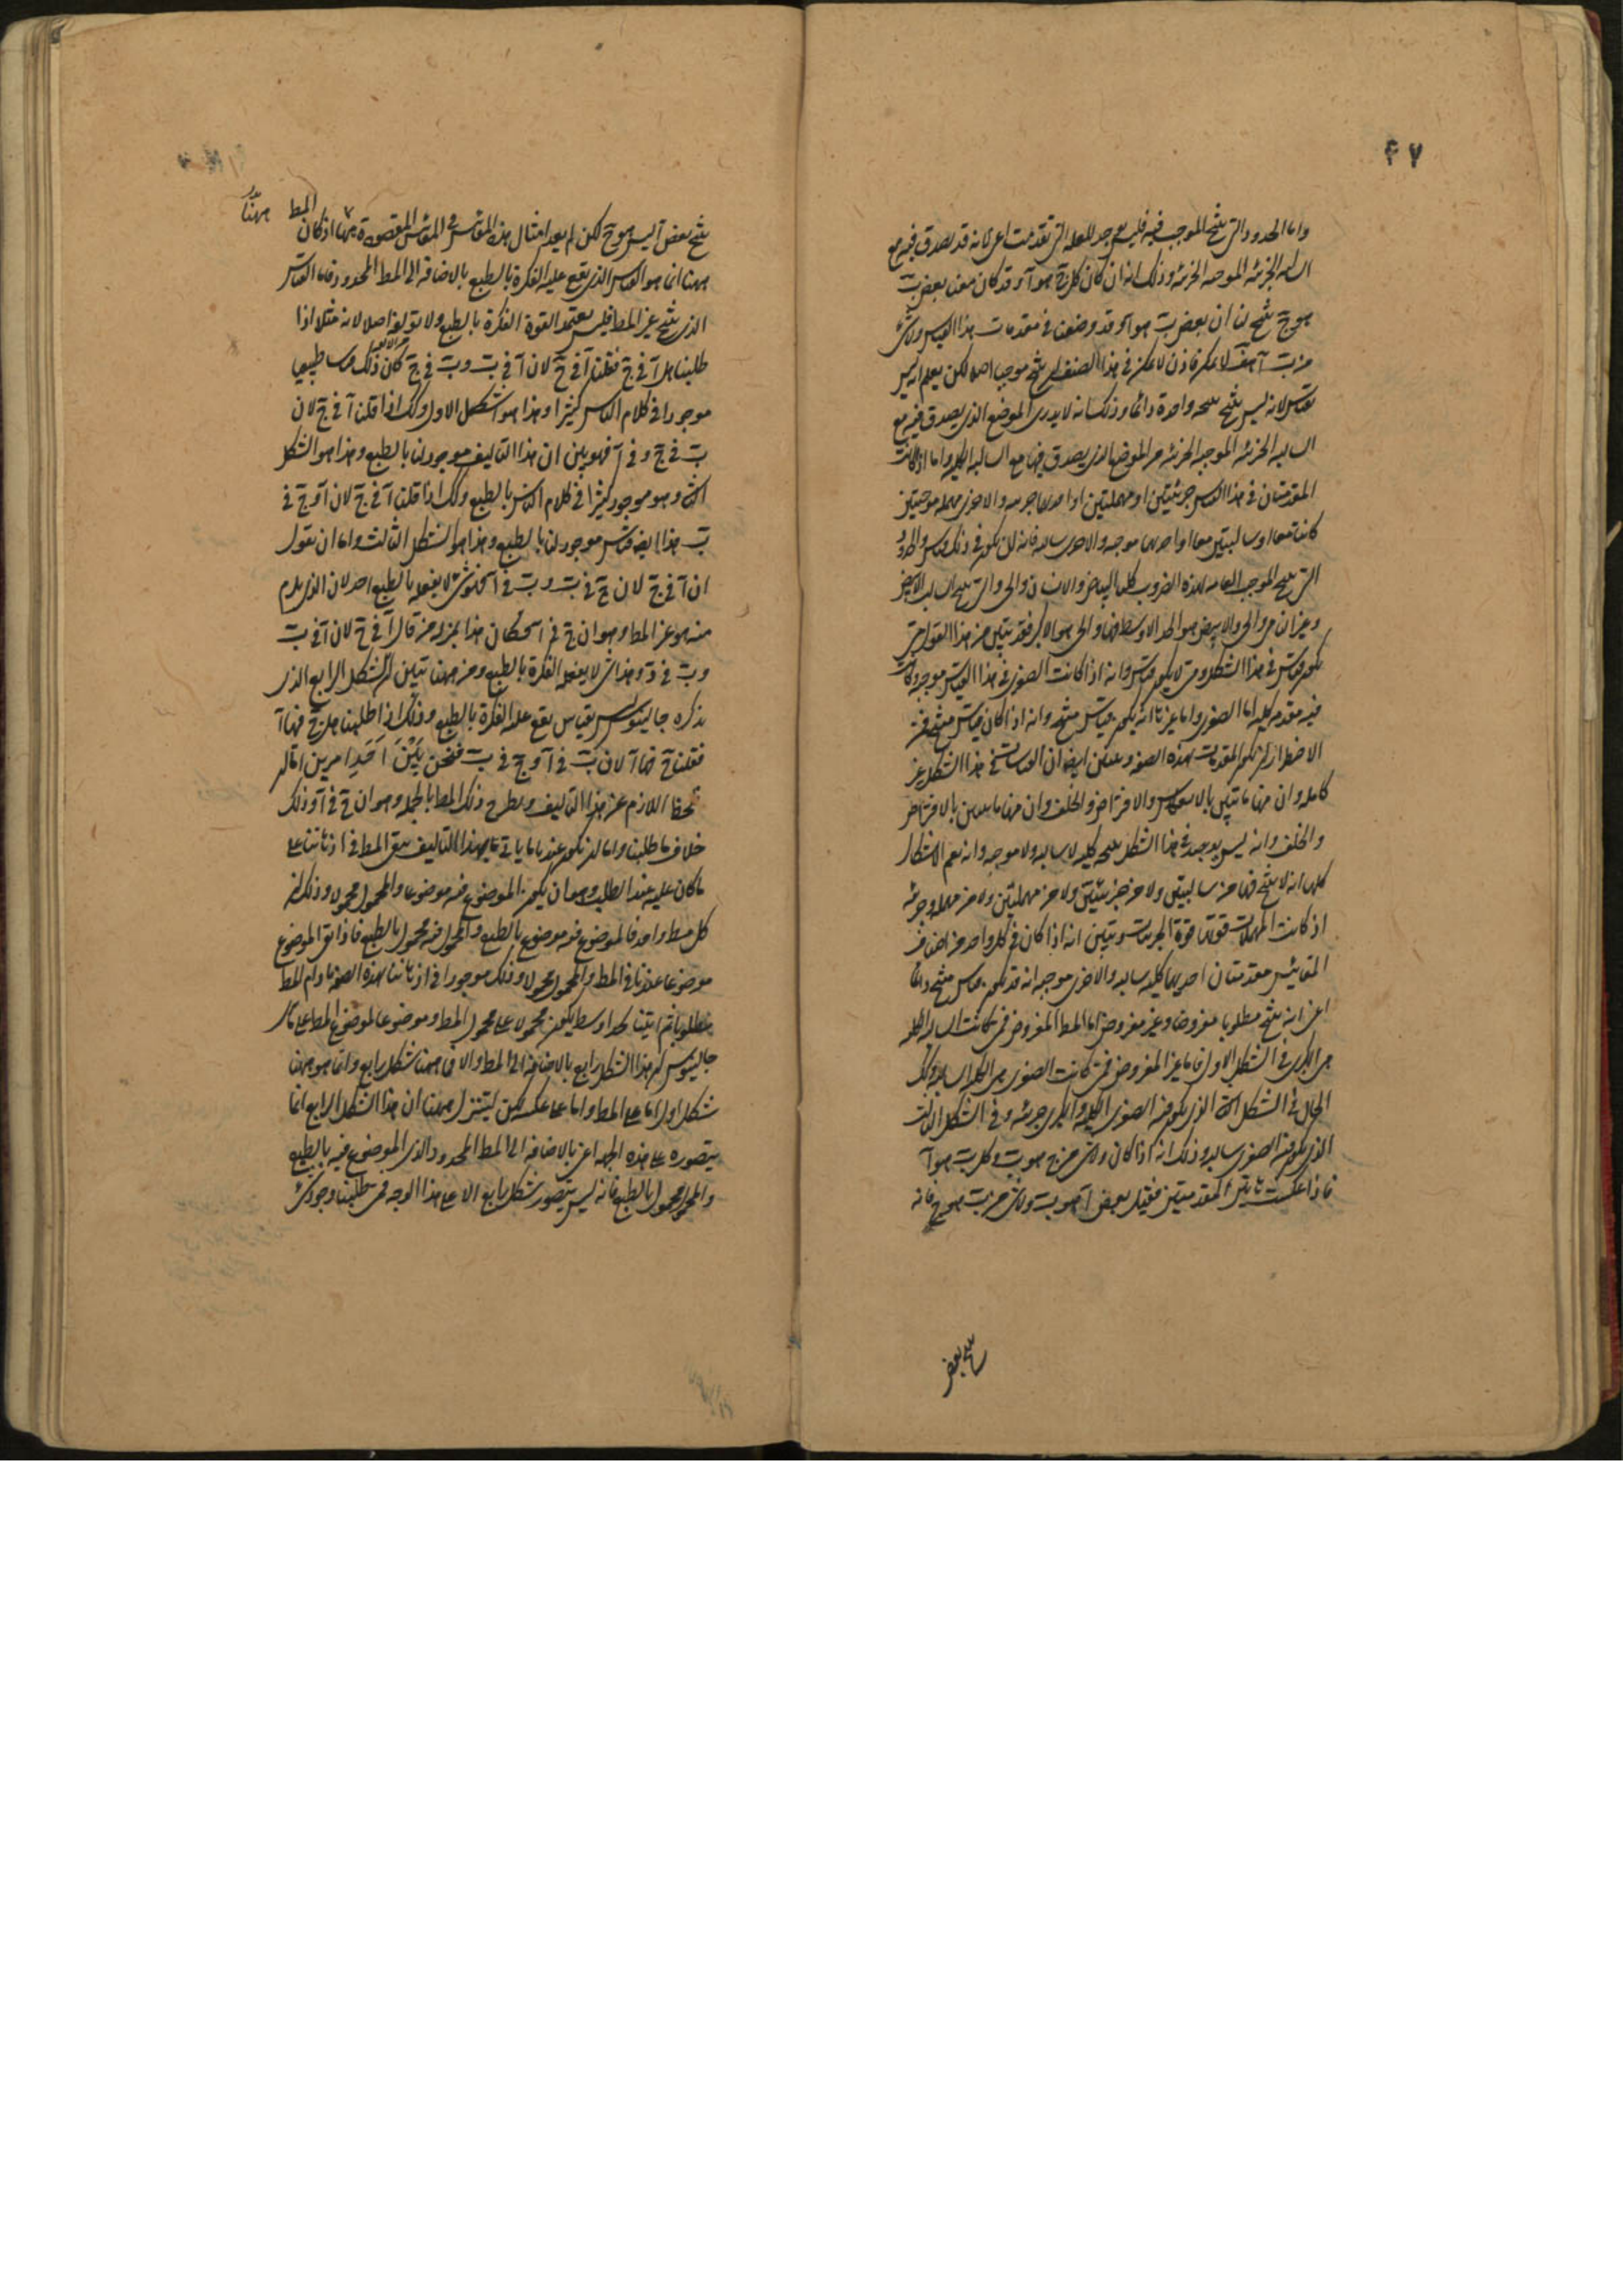 ۴۷
واما الحدود التى ينتج الموجب فيه فليس يوجد للعلة التى تقدمت اعنى لانه قد يصدق فيه مع
السالبة الجزئية الموجبة الجزئية وذلك انه ان كان كل ج هو آ وقد كان معنا بعض ب
هو ج ينتج لنا ان بعض ب هو آ وقد وضعنا فى مقدمات هذا القياس ولا شئ
من ب آ هف لا يمكن فاذن لا يمكن فى هذا الصنف ان ينتج موجب اصلا لكن يعلم انه ليس
بقياس لانه ليس ينتج نتيجة واحدة دائما وذلك انه لا يدرى الموضع الذى يصدق فيه مع
السالبة الجزئية الموجبة الجزئية من الموضع الذى يصدق فيها مع السالبة الكلية واما اذا كانت
المقدمتان فى هذا القياس جزئيتين او مهملتين او احديهما جزئية والاخرى مهملة موجبتين
كانتا معا او سالبتين معا او احديهما موجبة والاخرى سالبة فانه لن يكون فى ذلك قياس والحدود
التى تنتج الموجب العامة لهذه الضروب كلها البياض والانسان والحى والتى تنتج السالب الابيض
وغير الناطق والحى والابيض هو الحد الاوسط فيها والحى هو الاكبر فقد تبين من هذا القول متى
يكون قياس فى هذا الشكل ومتى لا يكون قياس وانه اذا كانت الصغرى فى هذا القياس موجبة وكانت
فيه مقدمة كلية اما الصغرى واما غيرها انه يكون قياس منتج وانه اذا كان قياس منتج فمن
الاضطرار ان يكون المقدمات بهذه الصفة وتبين ايضا ان القياسات فى هذا الشكل غير
كاملة وان منها ما تبين بالانعكاس والافتراض والخلف وان منها ما يتبين بالافتراض
والخلف وانه ليس يوجد فى هذا الشكل نتيجة كلية لا سالبة ولا موجبة وانه يعم الاشكال
كلها انه لا ينتج فيها من سالبتين ولا من جزئيتين ولا من مهملتين ولا من مهملة وجزئية
اذ كانت المهملات قوتها قوة الجزئيات وتبين انه اذا كان فى كل واحد من اصناف
المقائيس مقدمتان احديهما كلية سالبة والاخرى موجبة انه قد يكون قياس منتج دائما
اعنى انه ينتج مطلوبا مفروضا وغير مفروض اما المط المفروض فمتى كانت السالبة الكلية
هى الكبرى فى الشكل الاول فاما غير المفروض فمتى كانت الصغرى هى الكلية السالبة وكذلك
الحال فى الشكل الثانى الذى يكون فيه الصغرى الكلية والكبرى جزئية وفى الشكل الثالث
الذى يكون فيه الصغرى سالبة وذلك انه اذا كان ولا شئ من ج هو ب وكل ب هو آ
فاذا عكست هاتين المقدمتين فقيل بعض آ هو ب ولا شئ من ب هو ج فانه
ينتج بعض
ينتج بعض آ ليس هو ج لكن لم يعد امثال هذه المقائيس فى المقائيس المقصودة ههنا اذ كان المط ههنا
ههنا انما هو القياس الذى يقع عليه الفكرة بالطبع بالاضافة الى المط المحدود فاما القياس
الذى ينتج غير المط فليس يعتمد القوة الفكرة بالطبع ولا تولفه اصلا لانه مثلا اذا
طلبنا هل آ فى ج فقلنا آ فى ج لان آ فى ب و ب فى ج كان ذلك قياسا طبيعيا
موجودا فى كلام الناس كثيرا وهذا هو الشكل الاول وكذلك اذا قلنا آ فى ج لان
ب فى ج وفى آ فهو بين ان هذا التاليف موجود لنا بالطبع وهذا هو الشكل
الثانى وهو موجود كثيرا فى كلام الناس بالطبع وكذلك اذا قلنا آ فى ج لان آ و ج فى
ب هذا ايضا قياس موجود لنا بالطبع وهذا هو الشكل الثالث واما ان نقول
ان آ فى ج لان ج فى ب و ب فى آ فذلك شئ لا يفعله بالطبع احد لان الذى يلزم
منه هو غير المط وهو ان ج فى آ فكان هذا بمنزلة من قال آ فى ج لان آ فى ب
و ب فى د وهذا شئ لا يفعله الفكرة بالطبع ومن ههنا تبين ان الشكل الرابع الذى
يذكره جالينوس ليس بقياس يقع عليه الفكرة بالطبع وذلك انه اذا طلبنا هل ج فيها آ
فقلنا ج فيها آ لان ب فى آ و ج فى ب فنحن بَيْنَ اَحَدِ امرين اما ان
تحفظ اللازم عن هذا التاليف ويطرح ذلك المط بالجملة وهو ان ج فى آ وذلك
خلاف ما طلبنا واما ان يكون عندما ياتى بهذا التاليف يبقى المط فى اذهاننا على
ما كان عليه عند الطلب وهو ان يكون الموضوع فيه موضوعا والمحمول محمولا وذلك انه
كل مط واحد فالموضوع فيه موضوع بالطبع والمحمول فيه محمول بالطبع فاذا بقى الموضوع
موضوعا عندنا فى المط والمحمول محمولا وذلك موجودا فى اذهاننا بهذه الصفة ما دام المط
مطلوبا ثم اتينا بحد اوسط يكون محمولا على محمول المط وموضوعا لموضوع المط على ما قال
جالينوس كان هذا الشكل رابع بالاضافة الى المط والا فما ههنا شكل رابع وانما هو ههنا
شكل اول اما على المط واما على عكسه لكن لينزل ههنا ان هذا الشكل الرابع انما
يتصوره على هذه الجهة اعنى بالاضافة الى المط المحدود والذى الموضوع فيه بالطبع
والمحمول محمول بالطبع فانه ليس يتصور شكل رابع الا على هذا الوجه فمتى طلبنا وجود شئ